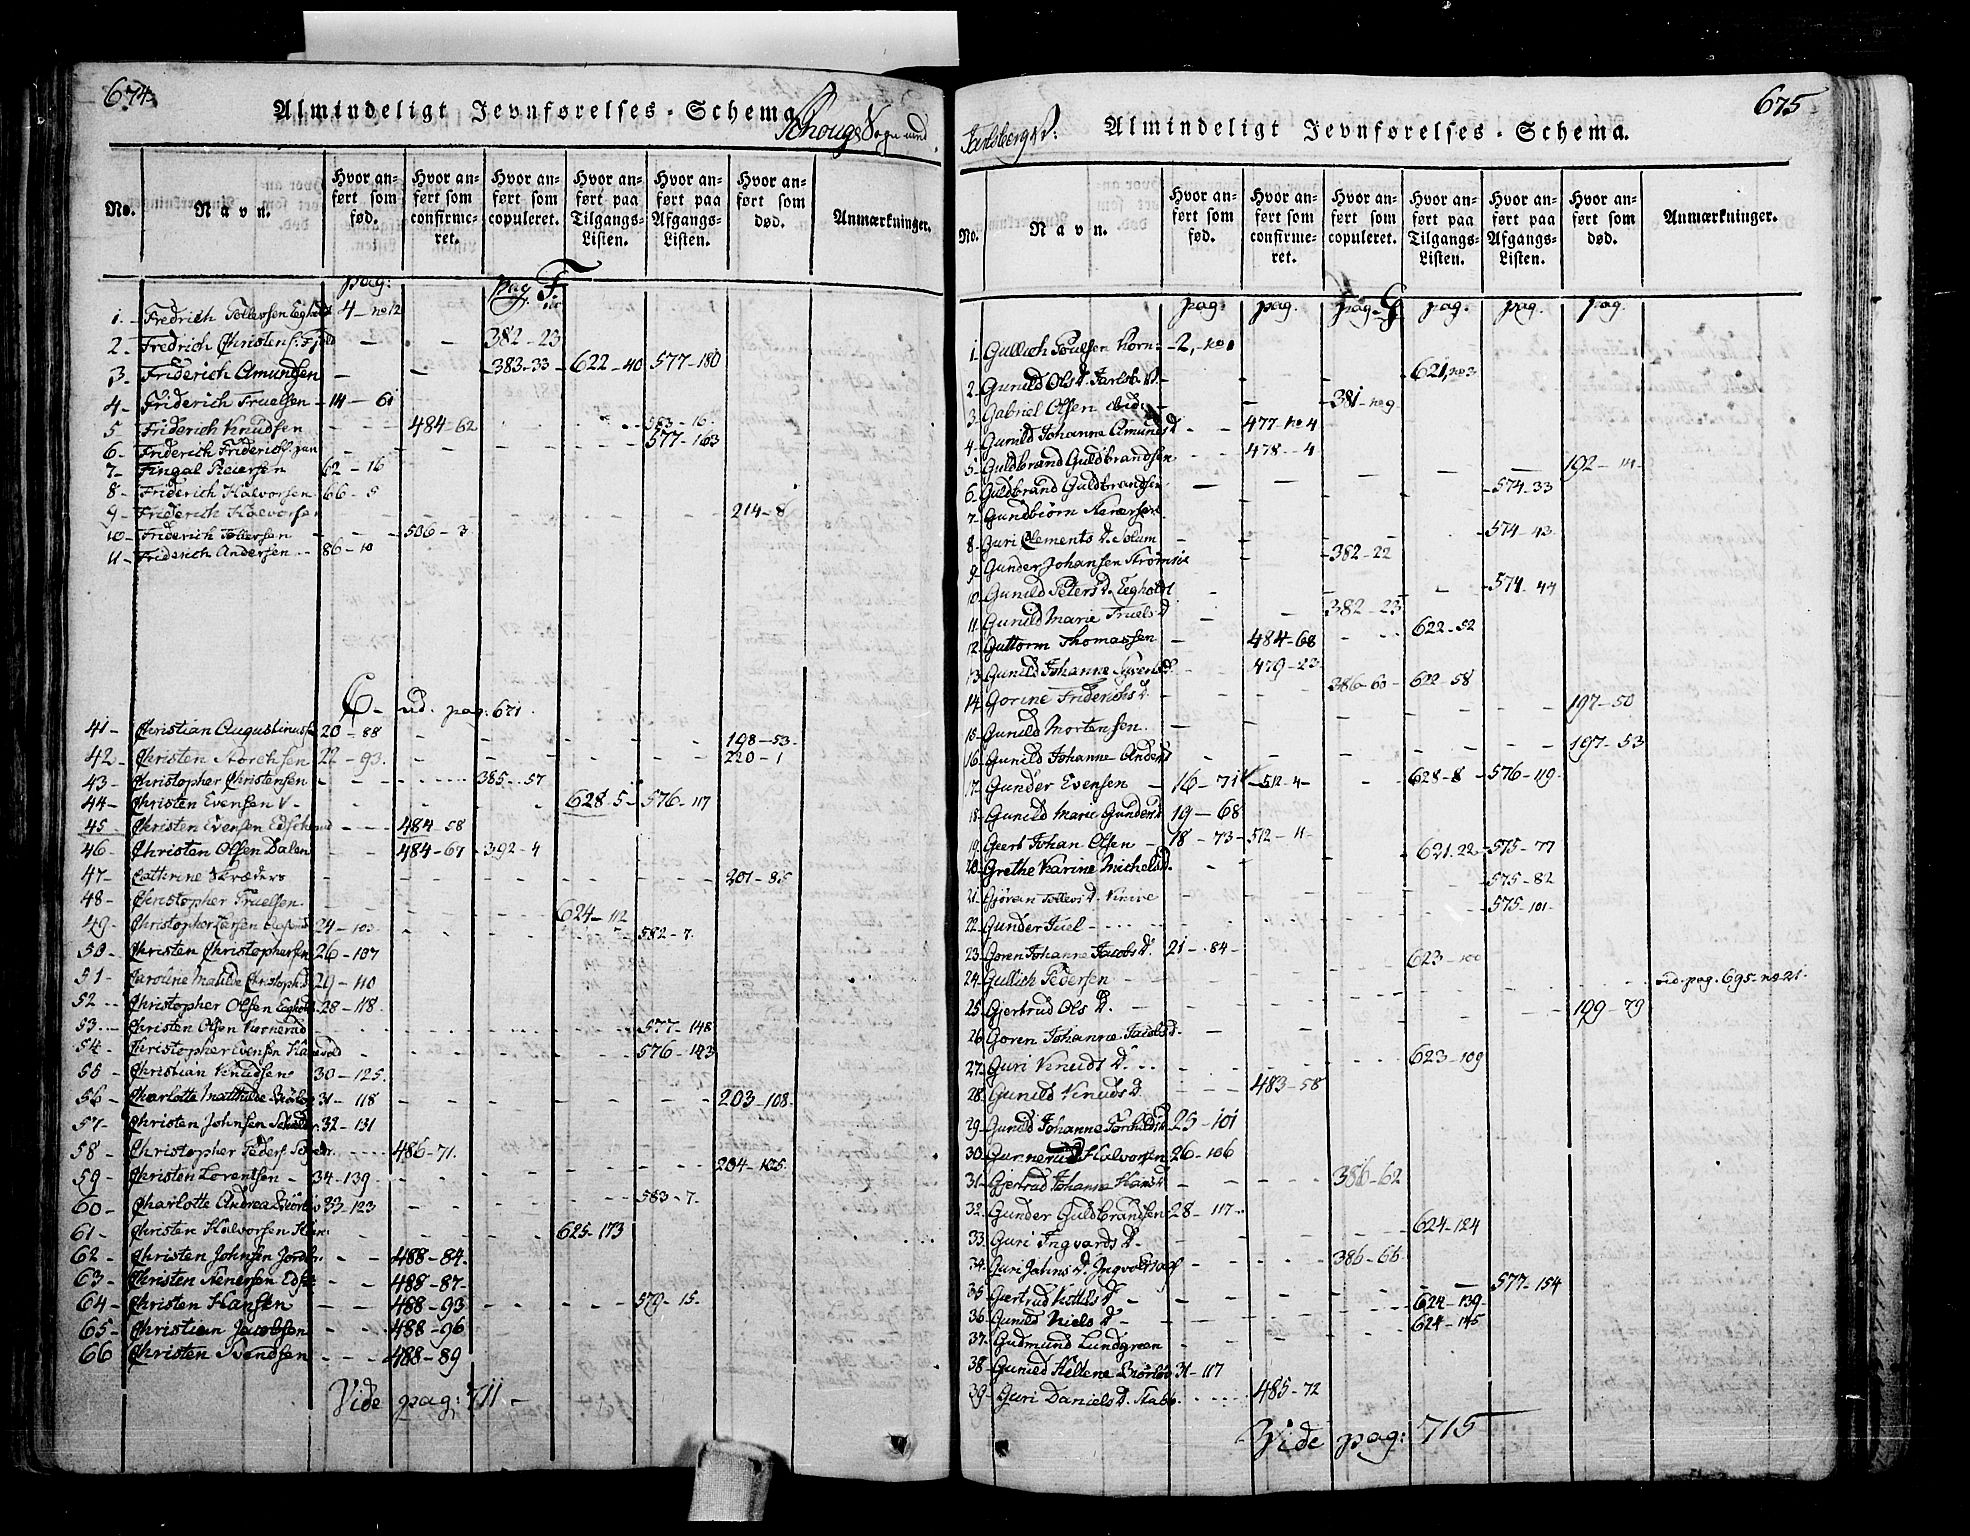 674.
Almindeligt Jevnførelses-Schema
Schouger Sogn und
No.
Navn.
Hvor anført som fød.
Hvor anført som confirmeret.
Hvor anført som copuleret.
Hvor anført paa Tilgangs-Listen.
Hvor anført paa Afgangs-Listen.
Hvor anført som død.
Anmærkninger.
pag: pag F
1 - Fredrich Tollevsen Egholt 4 - no 12
2 - Fredrich Christens. 382 - 23
3 - Friderich Amundsen 383 - 33 622 - 40 577 - 180
4 - Friderich Truelsen 14 - 61
5 Friderich Knudsen 484 - 62 583 - 16
6 - Friderich Friderichs. 577 - 163
7 - Fingal 62 - 16
8 - Friderich Halvorsen 66 - 5
9 - Friderich Halvorsen 214 - 8
10 - Friderich Tollevsen 506 - 3
11 - Friderich Andersen 86 - 10
C - vid. pag. 671.
41 - Christian Augustinuss 20 - 88 198 - 53
42 - Christen Storchsen 22 - 93. 220 - 1
43 - Christopher Christensen 385 - 57
44 - Christen Evensen 628 - 5 576 - 117
45 - Christen Evensen 484 - 58
46 - Christen Olsen Dalen 484 - 67 392 - 4
47 - Catterine Skræders 201 - 85
48 - Christopher Truelsen 624 - 112
49 - Christopher Larsen 24 - 103 582 - 7.
50 - Christen Christophersen 26 - 107
51 - Caroline Matilde Christophs 29 - 110
52 - Christopher Olsen Egholt 28 - 118.
53 - Christen Olsen Kornerud 577 - 148
54 - Christopher Evensen 576 - 143
55 - Christian Knudsen 30 - 125.
56 - Charlotte Matthilde 31 - 118 203 - 108
57 - Christen Johnsen 32 - 131
58 - Christopher Peders 486 - 71. 204 - 125
59 - Christen Lorentsen - 34 - 139
60 - Charlotte Andrea 33 - 123 583 - 7.
61 - Christen Halvorsen 625 - 173
62 - Christen Johnsen 488 - 84
63 - Christen 488 - 87
64 - Christen Hansen 488 - 93 579 - 15
65 - Christian Jacobsen 488 - 96
66 Christen Svendsen 488 - 89
Vide pag: 711 -
675
Jarlsberg V:
Almindeligt Jevnførelses-Schema.
No.
Navn.
Hvor anført som fød.
Hvor anført som confirmeret.
Hvor anført som copuleret.
Hvor anført paa Tilgangs-Listen.
Hvor anført paa Afgangs-Listen.
Hvor anført som død.
Anmærkninger.
pag: pag. pag. G pag. pag. pag.
1. Gullich Poulsen Korn: 2, no 1
2. Gunild Ols D. Jarlsb. V. 621, no 3
3. Gabriel Olsen ibid. 381 - no 9
4. Gunild Johanne Amunds D 477 no 4
5. Guldbrand Guldbrandsen 478 - 4 192 - 14
6. Guldbrand Guldbrandsen 574 - 33
7. Gundbiørn
8. Guri Clements D. Solum 574 - 43
9. Gunder Johansen Strømsøe 382 - 22
10. Gunild Peters D. Egholdt 574 - 44
11. Gunild Marie Truels D 382 - 23
12. Guttorm Thomassen 484 - 68 622 - 52
13. Gunild Johanne Svends D. 479 - 23
14. Gorine Friderichs D. 386 - 60 622 - 58 197 - 50
15. Gunild Mortensen
16. Gunild Johanne Anders 197 - 53
17. Gunder Evensen 16 - 71 512 - 4 628 - 8 576 - 119
18. Gunild Marie Gunders 19 - 68
19. Geert Johan Olsen 18 - 73 512 - 11
20. Grethe Karine Michels D. 621. 22 575 - 77
21. Gjøran Tollevs D. 575 - 82
22. Gunder Juel 575 - 101
23. Goren Johanne Jacobs D. 21 - 84
24. Gullich Pedersen 623 - 100 vid. pag. 695. no 21.
25. Gjertrud Ols D. 199 - 79
26. Goren Johanne Jacobs D.
27. Guri Knuds D. 623 - 109
28. Gunild Knuds D. 483 - 58
29. Gunild Johanne 25 - 101
30. Halvorsen 26 - 106
31. Gjertrud Johanne Hans D 386 - 62
32. Gunder Guldbrandsen 28 - 117
33. Guri Ingvards D. 624 - 124
34. Guri Jahns D. 386 - 66
35. Giertrud D 577 - 154
36. Gunild Niels D 624 - 139
37. Gudmund Lundgreen 624 - 145
38. Gunild Hellene 31 - 117
39 - Guri Daniels D. 485 - 72
Vide pag: 715